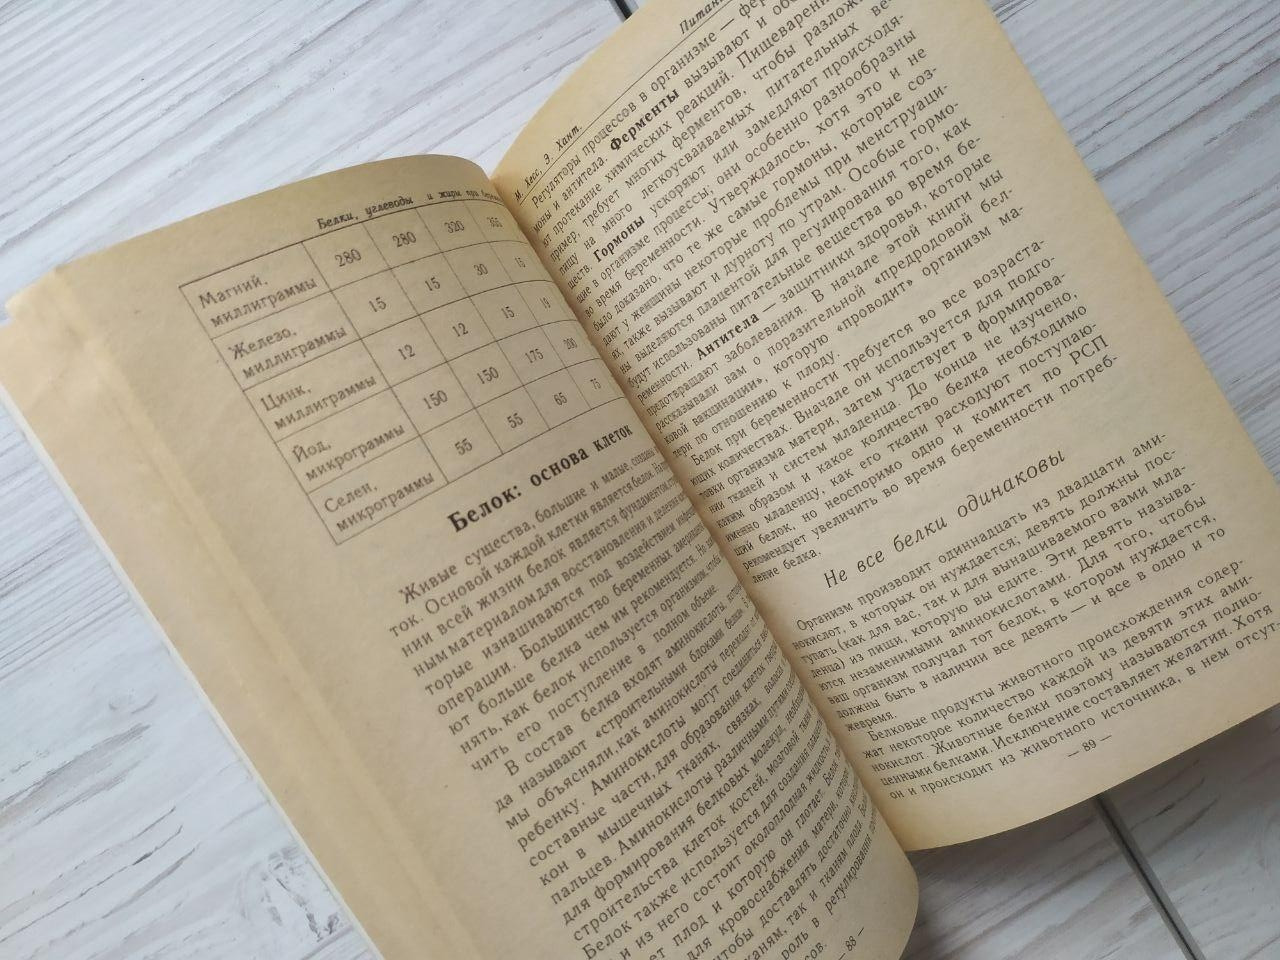 Белки, углеводы и жиры при
Магний,
миллиграммы 280 280 320 355
Железо,
миллиграммы 15 15 30 15
Цинк,
миллиграммы 12 12 15 19
Йод,
микрограммы 150 150 175 200
Селен,
микрограммы 55 55 65 75
Белок: основа клеток
Живые существа, большие и малые, созданы
ток. Основой каждой клетки является белок.
нии всей жизни белок является фундаментом,
ным материалом для восстановления и деления
торые изнашиваются под воздействием
операции. Большинство беременных
ют больше белка чем им рекомендуется. Но
нять, как белок используется организмом, чтобы
чить его поступление в полном объеме.
В состав белка входят аминокислоты,
да называют «строительными блоками белка».
мы объясняли, как аминокислоты переходят
ребенку. Аминокислоты могут соединяться
составные части, для образования клеток
кон в мышечных тканях, связках, волосах
пальцев. Аминокислоты различными путями
для формирования белковых молекул,
строительства клеток костей, мозговой ткани
Белок также используется для создания
и из него состоит околоплодная жидкость
ет плод и которую он глотает. Белок
для кровоснабжения матери,
чтобы доставлять достаточно
каням, так и тканям плода.
роль в регулировании
сов.
— 88 —
М. Хесс, Э. Хант.
Регуляторы процессов в организме —
моны и антитела. Ферменты вызывают и
ют протекание химических реакций.
пример, требует многих ферментов, чтобы
пищу на много легкоусваиваемых питательных ве-
ществ. Гормоны ускоряют или замедляют происходя-
щие в организме процессы; они особенно разнообразны
во время беременности. Утверждалось, хотя это и не
было доказано, что те же самые гормоны, которые соз-
дают у женщины некоторые проблемы при менструаци-
ях, также вызывают и дурноту по утрам. Особые гормо-
ны выделяются плацентой для регулирования того, как
будут использованы питательные вещества во время бе-
ременности. Антитела — защитники здоровья, которые
предотвращают заболевания. В начале этой книги мы
рассказывали вам о поразительной «предродовой бел-
ковой вакцинации», которую «проводит» организм ма-
тери по отношению к плоду.
Белок при беременности требуется во все возраста-
ющих количествах. Вначале он используется для подго-
товки организма матери, затем участвует в формирова-
нии тканей и систем младенца. До конца не изучено,
каким образом и какое количество белка необходимо
именно младенцу, как его ткани расходуют поступаю-
щий белок, но неоспоримо одно и комитет по РСП
рекомендует увеличить во время беременности потреб-
ление белка.
Не все белки одинаковы
Организм производит одиннадцать из двадцати ами-
нокислот, в которых он нуждается; девять должны пос-
тупать (как для вас, так и для вынашиваемого вами мла-
денца) из пищи, которую вы едите. Эти девять называ-
ются незаменимыми аминокислотами. Для того, чтобы
ваш организм получал тот белок, в котором нуждается,
должны быть в наличии все девять — и все в одно и то
жевремя.
Белковые продукты животного происхождения содер-
жат некоторое количество каждой из девяти этих ами-
нокислот. Животные белки поэтому называются полно-
ценными белками. Исключение составляет желатин. Хотя
он и происходит из животного источника, в нем отсут-
— 89 —